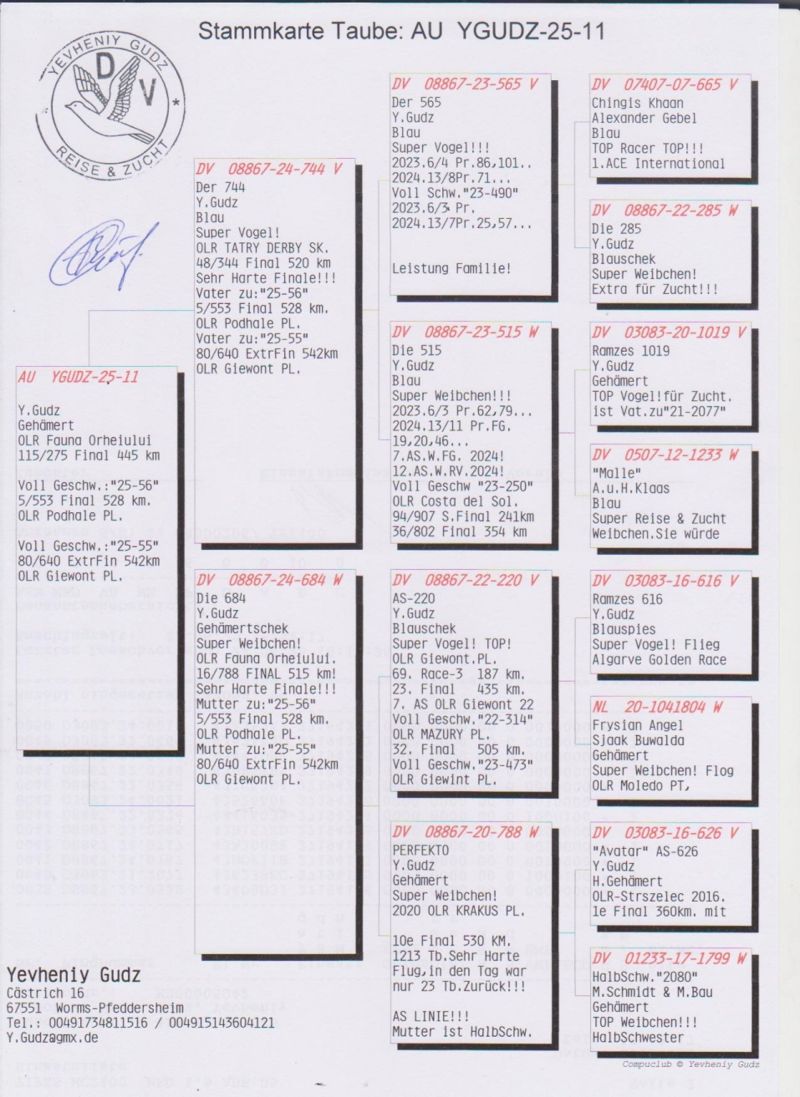 Stammkarte Taube: AU YGUDZ-25-11
YEVHENIY GUDZ
D V
* REISE & ZUCHT *
AU YGUDZ-25-11
Y.Gudz
Gehämert
OLR Fauna Orheiului
115/275 Final 445 km
Voll Geschw.:"25-56"
5/553 Final 528 km.
OLR Podhale PL.
Voll Geschw.:"25-55"
80/640 ExtrFin 542km
OLR Giewont PL.
DV 08867-24-744 V
Der 744
Y.Gudz
Blau
Super Vogel!
OLR TATRY DERBY SK.
48/344 Final 520 km
Sehr Harte Finale!!!
Vater zu:"25-56"
5/553 Final 528 km.
OLR Podhale PL.
Vater zu:"25-55"
80/640 ExtrFin 542km
OLR Giewont PL.
DV 08867-24-684 W
Die 684
Y.Gudz
Gehämertschek
Super Weibchen!
OLR Fauna Orheiului.
16/788 FINAL 515 km!
Sehr Harte Finale!!!
Mutter zu:"25-56"
5/553 Final 528 km.
OLR Podhale PL.
Mutter zu:"25-55"
80/640 ExtrFin 542km
OLR Giewont PL.
DV 08867-23-565 V
Der 565
Y.Gudz
Blau
Super Vogel!!!
2023.6/4 Pr.86,101..
2024.13/8Pr.71...
Voll Schw."23-490"
2023.6/3 Pr.
2024.13/7Pr.25,57...
Leistung Familie!
DV 08867-23-515 W
Die 515
Y.Gudz
Blau
Super Weibchen!!!
2023.6/3 Pr.62,79...
2024.13/11 Pr.FG.
19,20,46...
7.AS.W.FG. 2024!
12.AS.W.RV.2024!
Voll Geschw "23-250"
OLR Costa del Sol.
94/907 S.Final 241km
36/802 Final 354 km
DV 08867-22-220 V
AS-220
Y.Gudz
Blauschek
Super Vogel! TOP!
OLR Giewont.PL.
69. Race-3 187 km.
23. Final 435 km.
7. AS OLR Giewont 22
Voll Geschw."22-314"
OLR MAZURY PL.
32. Final 505 km.
Voll Geschw."22-473"
OLR Giewint PL.
DV 08867-20-788 W
PERFEKTO
Y.Gudz
Gehämert
Super Weibchen!
2020 OLR KRAKUS PL.
10e Final 530 KM.
1213 Tb.Sehr Harte
Flug,in den Tag war
nur 23 Tb.Zurück!!!
AS LINIE!!!
Mutter ist HalbSchw.
DV 07407-07-665 V
Chingis Khaan
Alexander Gebel
Blau
TOP Racer TOP!!!
1.ACE International
DV 08867-22-285 W
Die 285
Y.Gudz
Blauschek
Super Weibchen!
Extra für Zucht!!!
DV 03083-20-1019 V
Ramzes 1019
Y.Gudz
Gehämert
TOP Vogel!für Zucht.
ist Vat.zu"21-2077"
DV 0507-12-1233 W
"Malle"
A.u.H.Klaas
Blau
Super Reise & Zucht
Weibchen.Sie würde
DV 03083-16-616 V
Ramzes 616
Y.Gudz
Blauspies
Super Vogel! Flieg
Algarve Golden Race
NL 20-1041804 W
Frysian Angel
Sjaak Buwalda
Gehämert
Super Weibchen! Flog
OLR Moledo PT,
DV 03083-16-626 V
"Avatar" AS-626
Y.Gudz
H.Gehämert
OLR-Strszelec 2016.
1e Final 360km. mit
DV 01233-17-1799 W
HalbSchw."2080"
M.Schmidt & M.Bau
Gehämert
TOP Weibchen!!!
HalbSchwester
Yevheniy Gudz
Cästrich 16
67551 Worms-Pfeddersheim
Tel.: 00491734811516 / 004915143604121
Y.Gudz@gmx.de
Compuclub © Yevheniy Gudz